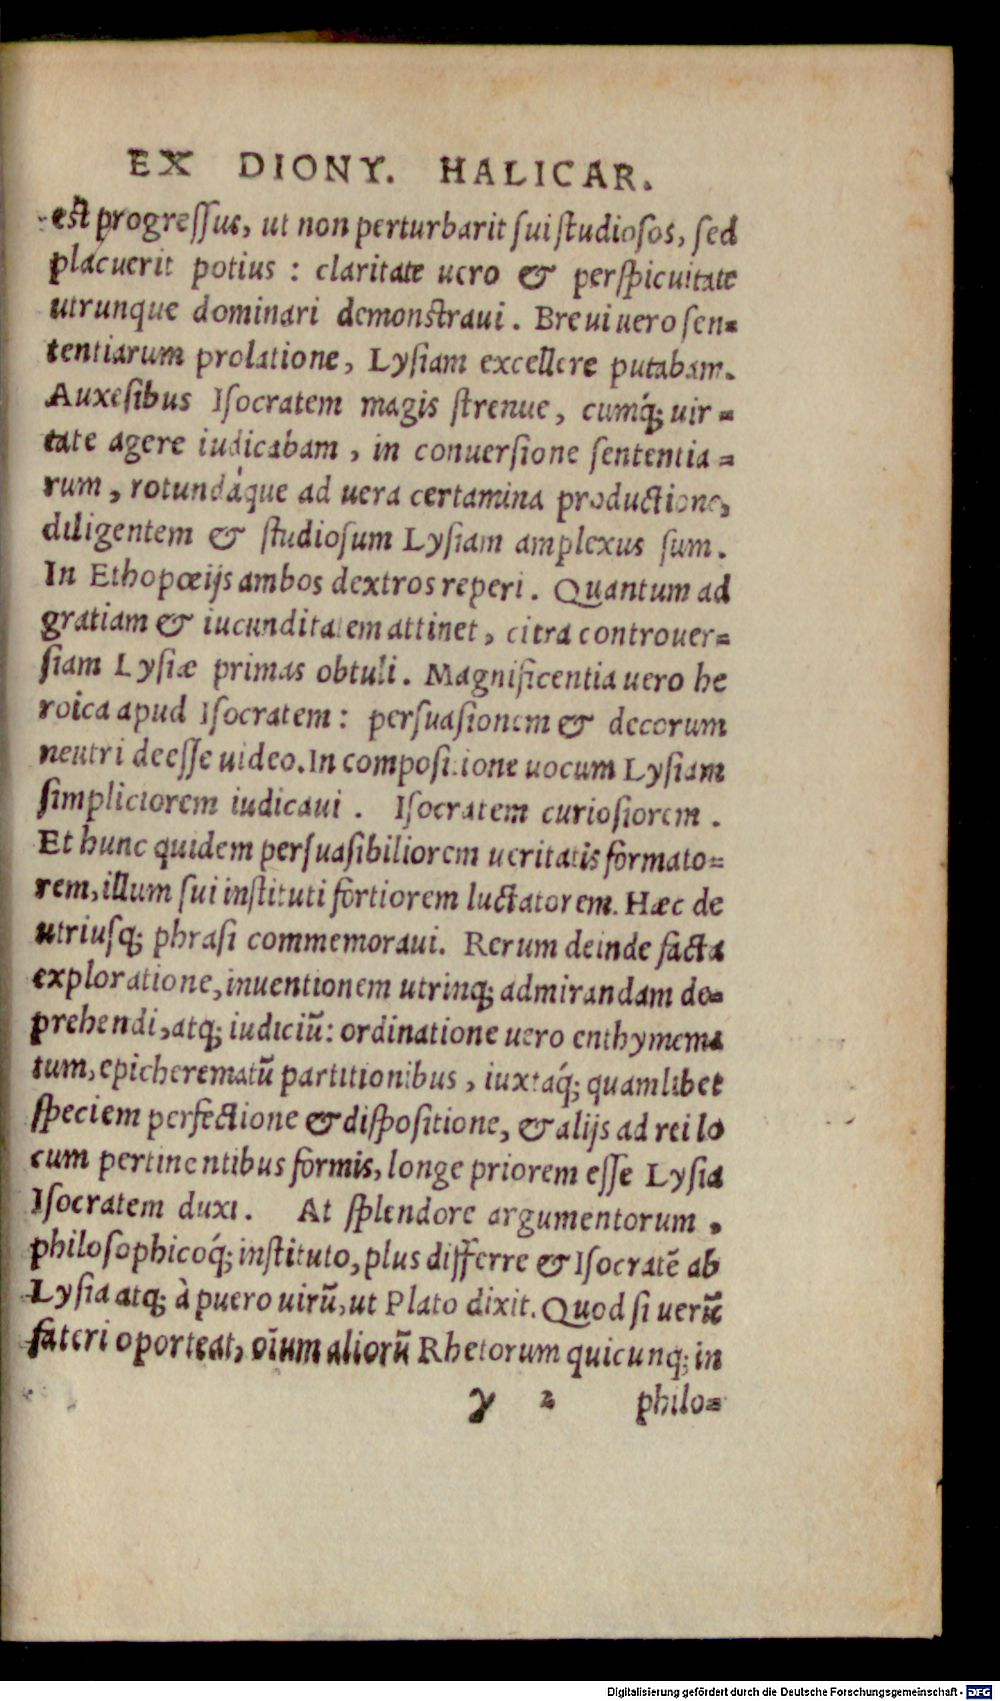 EX DIONY. HALICAR.
est progreſſus, ut non perturbarit ſui ſtudioſos, ſed
placuerit potius : claritate uero & perſpicuitate
utrunque dominari demonstraui. Breui uero ſen-
tentiarum prolatione, Lyſiam excellere putabam.
Auxeſibus Iſocratem magis ſtrenue, cumq́; uir-
tate agere iudicabam, in conuerſione ſententia-
rum, rotundáque ad uera certamina productione,
diligentem & ſtudioſum Lyſiam amplexus ſum.
In Ethopœijs ambos dextros reperi. Quantum ad
gratiam & iucunditatem attinet, citra controuer-
ſiam Lyſiæ primas obtuli. Magnificentia uero he
roica apud Iſocratem : perſuaſionem & decorum
neutri deeſſe uideo. In compoſitione uocum Lyſiam
ſimpliciorem iudicaui. Iſocratem curioſiorem.
Et hunc quidem perſuaſibiliorem ueritatis formato-
rem, illum ſui inſtituti fortiorem luctatorem. Hæc de
utriuſq; phraſi commemoraui. Rerum deinde facta
exploratione, inuentionem utrinq; admirandam de-
prehendi, atq; iudiciũ: ordinatione uero enthymema
tum, epicherematũ partitionibus, iuxtaq́; quamlibet
ſpeciem perfectione & diſpoſitione, & alijs ad rei lo
cum pertinentibus formis, longe priorem eſſe Lyſia
Iſocratem duxi. At ſplendore argumentorum,
philoſophicoq́; inſtituto, plus differre & Iſocratẽ ab
Lyſia atq; à puero uirũ, ut Plato dixit. Quod ſi uerũ
fateri oporteat, oĩum aliorũ Rhetorum quicunq; in
y 2 philo-
Digitalisierung gefördert durch die Deutsche Forschungsgemeinschaft - DFG